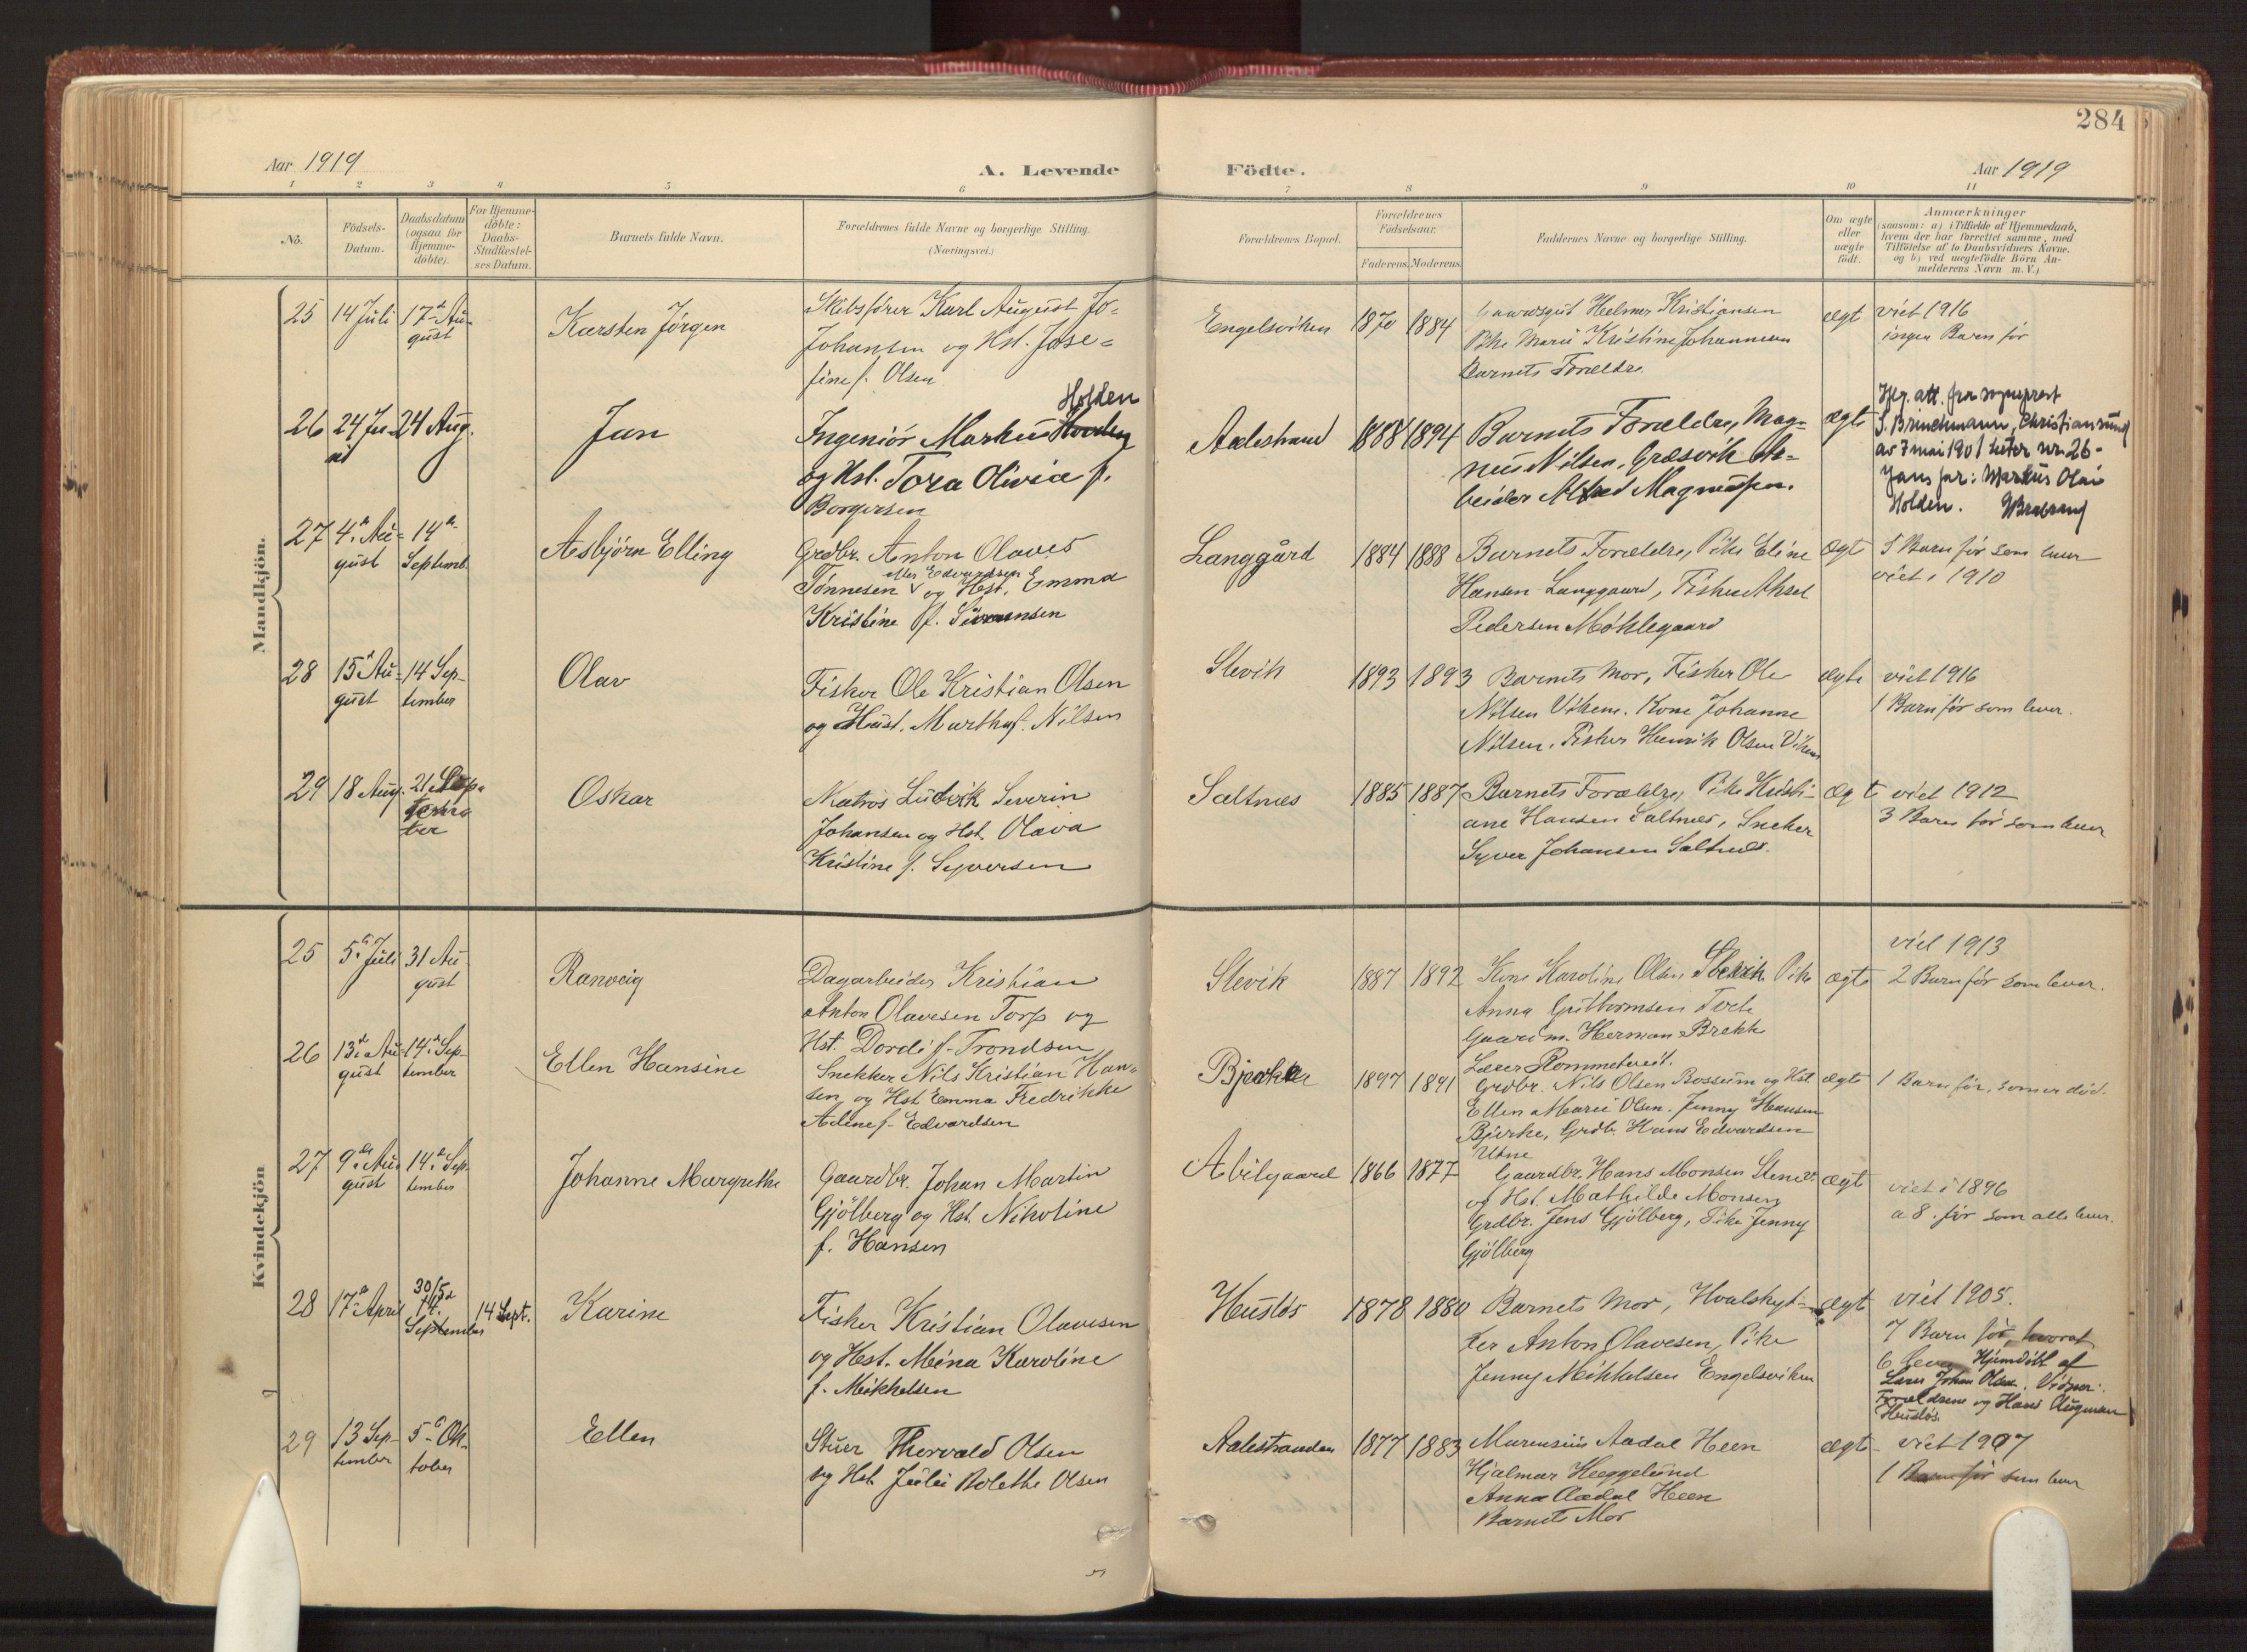 284
Aar 1919
A. Levende
Födte.
Aar 1919
1 2 3 4 5 6 7 8 9 10 11
No.
Födsels-
Datum.
Daabsdatum
(ogsaa for
Hjemme-
döbte).
For Hjemme-
döbte:
Daabs-
Stadfæstel-
ses Datum.
Barnets fulde Navn.
Forældrenes fulde Navne og borgerlige Stilling.
(Næringsvei.)
Forældrenes Bopæl.
Forældrenes
Födselsaar.
Faderens. Moderens.
Faddernes Navne og borgerlige Stilling.
Om ægte
eller
uægte
födt.
Anmærkninger
(saasom: a) i Tilfælde af Hjemmedaab,
hvem der har forrettet samme, med
Tilföielse af to Daabsvidners Navne.
og b) ved uægtefödte Börn An-
melderens Navn m. V.)
Mandkjön.
25
14 Juli
17d Au-
gust
Karsten Jörgen
Skibsförer Karl August Jo-
Johansen og Hst. Jose-
fine f. Olsen
Engelsviken
1870
1884
Gaardsgut Helmer Kristiansen
Pike Marie Kristine Johannesen
Barnets Forældre
ægte
viet 1916
ingen Barn för
26
24 Ju-
ni
24 Aug.
Jan
Holden
Ingeniör Markus
og Hst. Tora Olivia f.
Borgersen
Aalestrand
1888
1894
Barnets Forældre, Mag-
nus Nilsen, Græsvik Ar-
beider Alfred Magnussen.
ægte
Iflg. att. fra sogneprest
S. Brinchmann, Christiansund
av 7 mai 1901 heter nr. 26-
Jans far: Markus Olai
Holden.
27
4d Au-
gust
14d
Septemb.
Asbjörn Elling
Grdbr. Anton Olaves
eller Edvardsen
Tönnesen og Hst. Emma
Kristine f. Simonsen
Langgård
1884
1888
Barnets Forældre, Pike Eline
Hansen Langgaard, Fisker Aksel
Pedersen Möklegaard
ægte
5 Barn för som lever
viet i 1910
28
15d Au-
gust
14 Sep-
tember
Olav
Fisker Ole Kristian Olsen
og Hust. Martha f. Nilsen
Slevik
1893
1893
Barnets Mor, Fisker Ole
Nilsen Viken. Kone Johanne
Nilsen. Fisker Henrik Olsen Viken
ægte
viet 1916
1 Barn för som lever.
29
18 Aug.
21 Sep-
tem-
ber
Oskar
Matros Ludvik Severin
Johansen og Hst. Olava
Kristine f. Syversen
Saltnes
1885
1887
Barnets Forældre, Pike Kristi-
ane Hansen Saltnes, Sneker
Syver Johansen Saltnes.
ægte
viet 1912
3 Barn för som lever
Kvindekjön
25
5d Juli
31 Au-
gust
Ranveig
Dagarbeider Kristian
Anton Olavesen Torp og
Hst. Dordi f. Trondsen
Slevik
1887
1892
Kone Karoline Olsen Slevik Pike
Anna Guttormsen
Gaardm. Herman Brekke
Lærer Rommetveit.
ægte
viet 1913
2 Barn för som lever.
26
13d Au-
gust
14d Sep-
tember
Ellen Hansine
Snekker Nils Kristian Han-
sen og Hst Emma Fredrikke
Adine f. Edvardsen
Bjerke
1897
1891
Grdbr. Nils Olsen Bossum og Hst
Ellen Marie Olsen. Jenny Hansen
Bjerke, Grdb. Hans Edvardsen
Utne
ægte
1 Barn för, som er död.
27
9de Au-
gust
14d Sep-
tember
Johanne Margrethe
Gaardbr. Johan Martin
Gjölberg og Hst. Nikoline
f. Hansen
Abilgaard
1866
1877
Gaardbr. Hans Monsen
og Hst. Mathilde Monsen
Grdbr. Jens Gjölberg, Pike Jenny
Gjölberg
ægte
viet i 1896
8. för som alle lever.
28
17d April
30/5
14.
September
14 Sept.
Karine
Fisker Kristian Olavesen
og Hst. Mina Karoline
f. Mikkelsen
Huslös
1878
1880
Barnets Mor, Hvalskyt-
ter Anton Olavesen, Pike
Jenny Mikkelsen Engelsviken
ægte
viet 1905.
7 Barn för hvoraf
6 lever Hjemdöbt af
Lærer Johan Olsen. Vidner:
Forældrene og Hans Augman
Huslös
29
13 Sep-
tember
5d Ok-
tober
Ellen
Stuer Thorvald Olsen
og Hst. Julie Bolethe Olsen
Aalestranden
1877
1883
Marensius Aadal Heen
Hjalmar Heggelund
Anna Aadal Heen
Barnets Mor
ægte
viet 1907
1 Barn för som lever